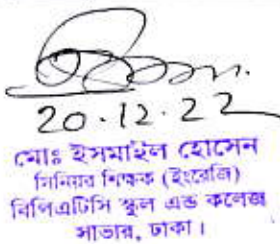 20.12.22
মোঃ ইসমাইল হোসেন
সিনিয়র শিক্ষক (ইংরেজি)
বিপিএটিসি স্কুল এন্ড কলেজ
সাভার, ঢাকা।